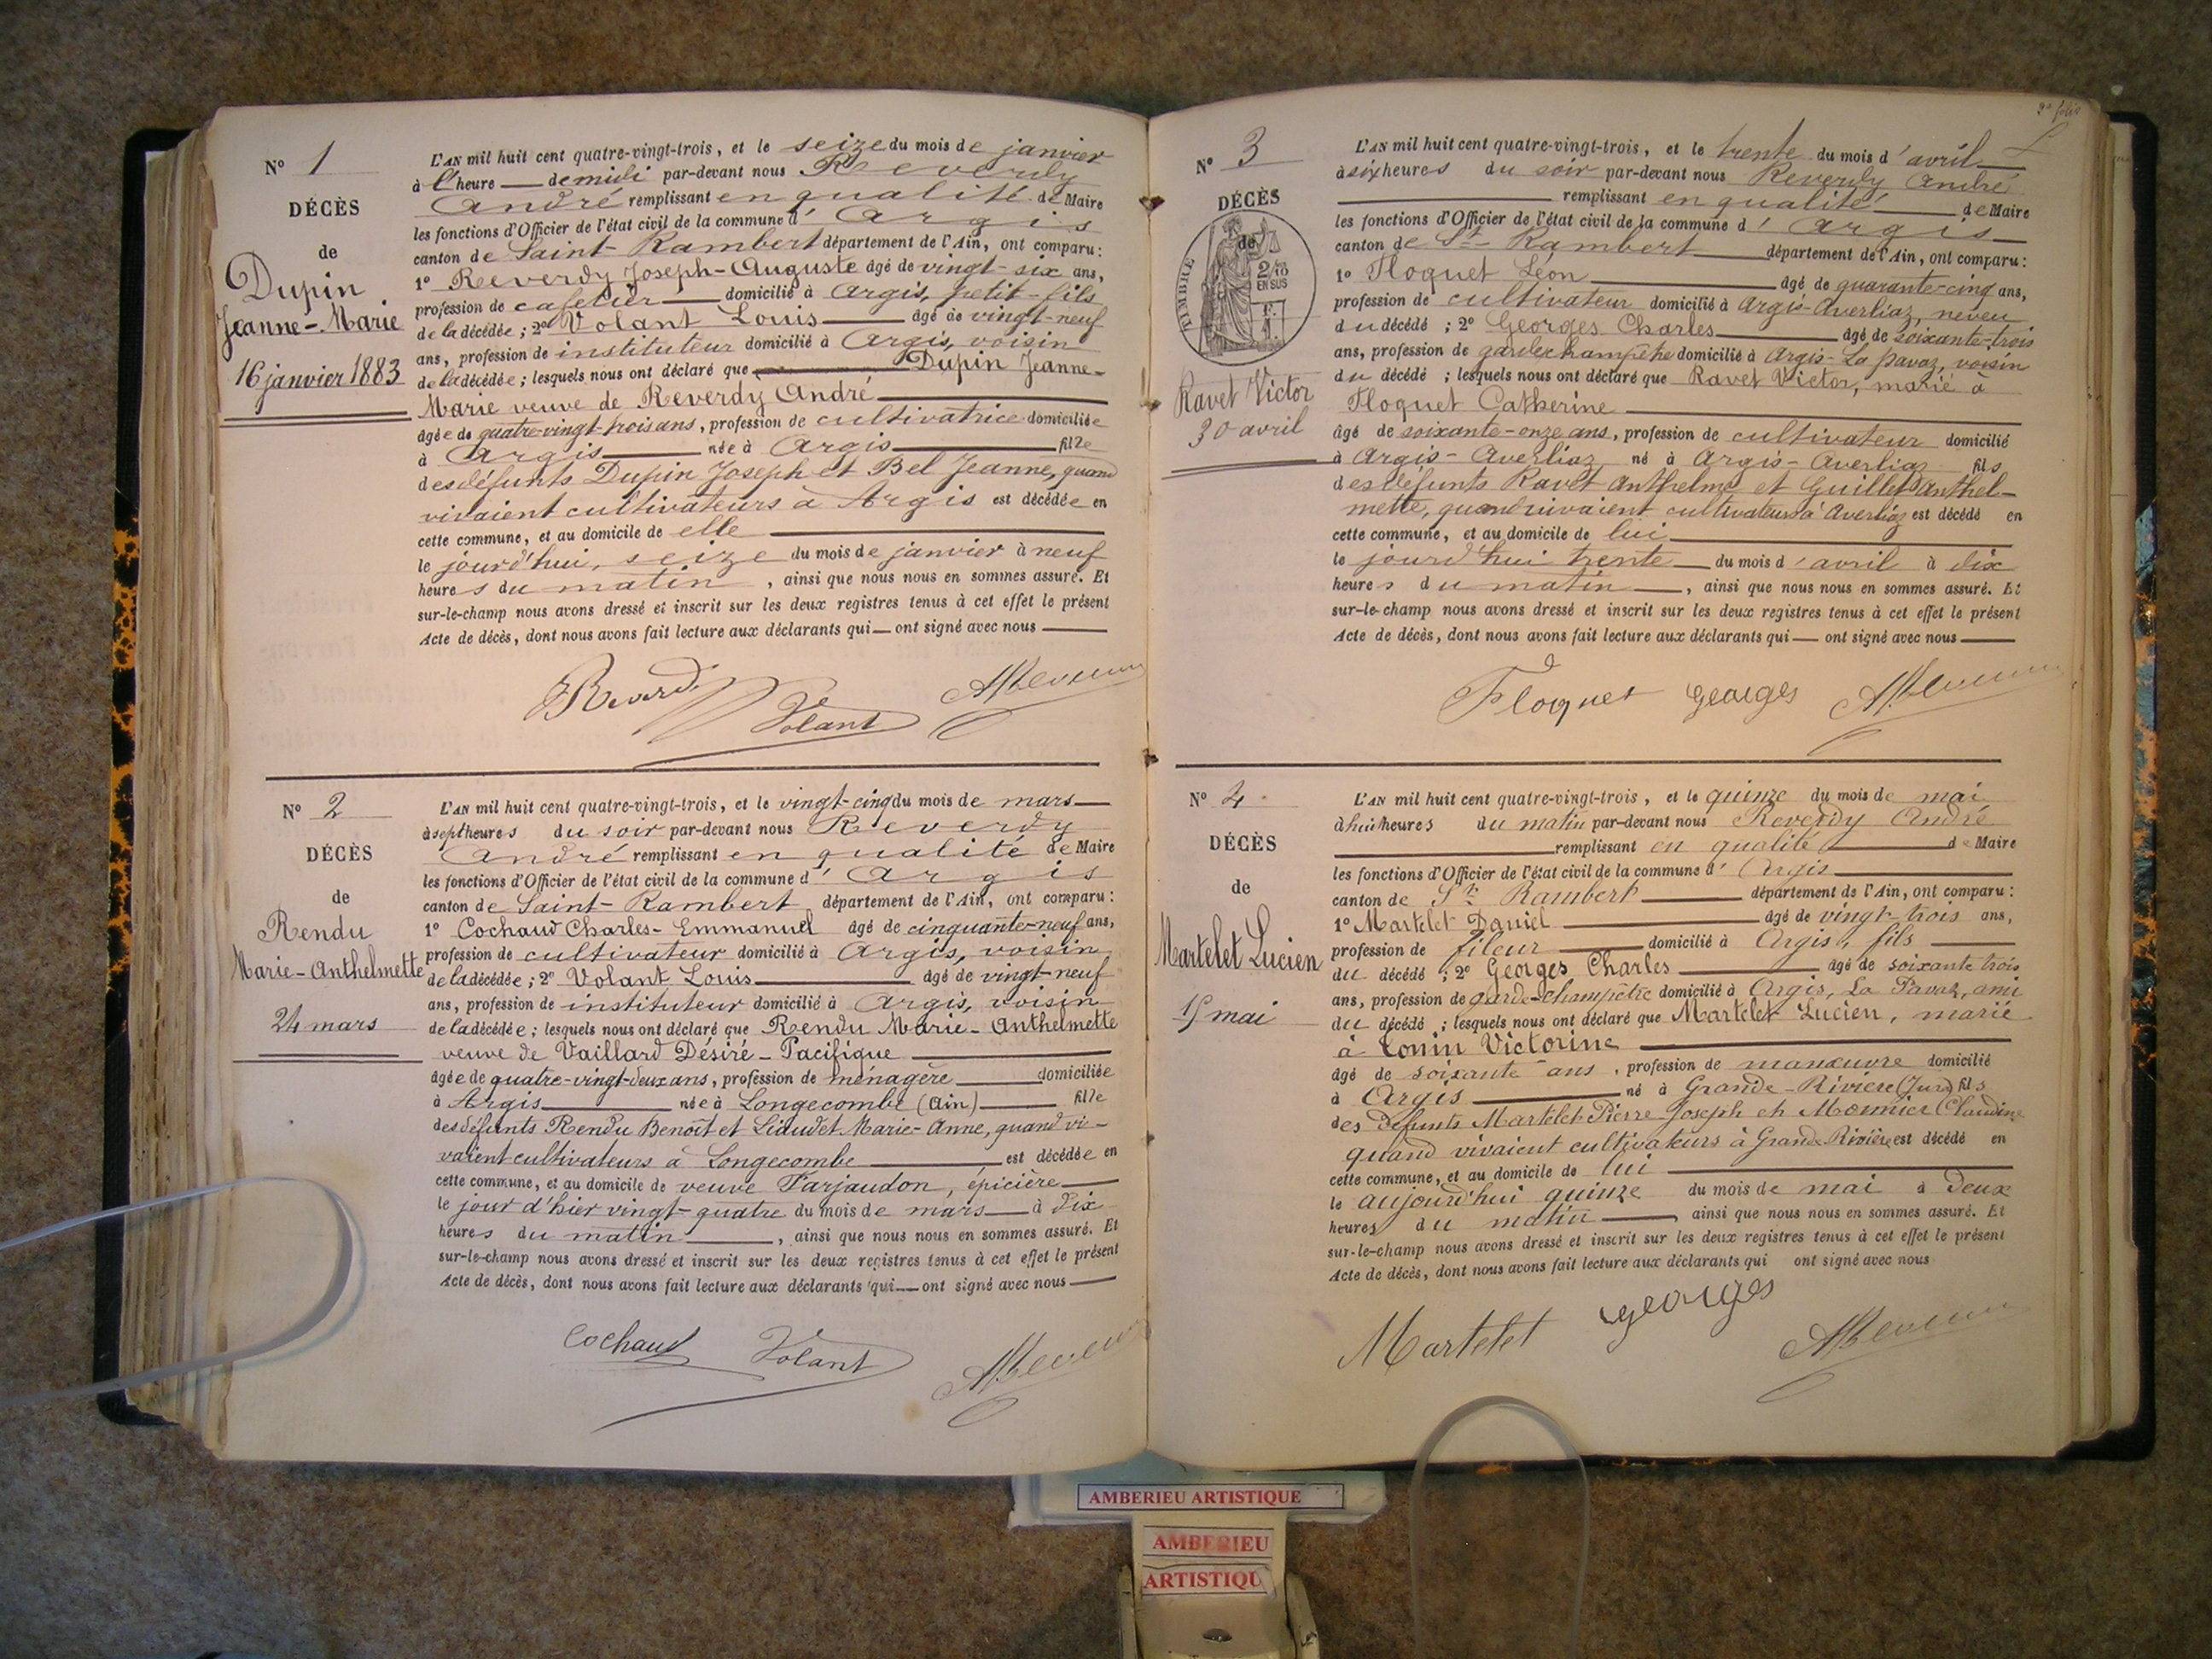 N° 1
DÉCÈS
de
Dupin
Jeanne-Marie
16 janvier 1883
L'AN mil huit cent quatre-vingt-trois, et le seize du mois de janvier
à l'heure de midi par-devant nous Reverdy
André remplissant en qualité de Maire
les fonctions d'Officier de l'état civil de la commune d'Argis
canton de Saint-Rambert département de l'Ain, ont comparu:
1° Reverdy Joseph-Auguste âgé de vingt-six ans,
profession de cafetier domicilié à Argis, petit-fils
de la décédée; 2° Volant Louis âgé de vingt-neuf
ans, profession de instituteur domicilié à Argis, voisin
de la décédée; lesquels nous ont déclaré que Dupin Jeanne-
Marie veuve de Reverdy André
âgée de quatre-vingt-trois ans, profession de cultivatrice domiciliée
à Argis née à Argis fille
des défunts Dupin Joseph et Bel Jeanne, quand
vivaient cultivateurs à Argis est décédée en
cette commune, et au domicile de elle
le jourd'hui, seize du mois de janvier à neuf
heures du matin, ainsi que nous nous en sommes assuré. Et
sur-le-champ nous avons dressé et inscrit sur les deux registres tenus à cet effet le présent
Acte de décès, dont nous avons fait lecture aux déclarants qui ont signé avec nous
Volant
N° 2
DÉCÈS
de
Rendu
Marie-Anthelmette
24 mars
L'AN mil huit cent quatre-vingt-trois, et le vingt-cinq du mois de mars
à sept heures du soir par-devant nous Reverdy
André remplissant en qualité de Maire
les fonctions d'Officier de l'état civil de la commune d'Argis
canton de Saint-Rambert département de l'Ain, ont comparu:
1° Cochaud Charles-Emmanuel âgé de cinquante-neuf ans,
profession de cultivateur domicilié à Argis, voisin
de la décédée; 2° Volant Louis âgé de vingt-neuf
ans, profession de instituteur domicilié à Argis, voisin
de la décédée; lesquels nous ont déclaré que Rendu Marie-Anthelmette
veuve de Vaillard Désiré-Pacifique
âgée de quatre-vingt-deux ans, profession de ménagère domiciliée
à Argis née à Longecombe (Ain) fille
des défunts Rendu Benoît et Liaudet Marie-Anne, quand vi-
vaient cultivateurs à Longecombe est décédée en
cette commune, et au domicile de veuve Farjaudon, épicière
le jour d'hier vingt-quatre du mois de mars à dix
heures du matin, ainsi que nous nous en sommes assuré. Et
sur-le-champ nous avons dressé et inscrit sur les deux registres tenus à cet effet le présent
Acte de décès, dont nous avons fait lecture aux déclarants qui ont signé avec nous
Cochaud Volant
2e folio
N° 3
DÉCÈS
de
TIMBRE
2/10
EN SUS
Ravet Victor
30 avril
L'AN mil huit cent quatre-vingt-trois, et le trente du mois d'avril
à six heures du soir par-devant nous Reverdy André
remplissant en qualité de Maire
les fonctions d'Officier de l'état civil de la commune d'Argis
canton de St-Rambert département de l'Ain, ont comparu:
1° Floquet Léon âgé de quarante-cinq ans,
profession de cultivateur domicilié à Argis-Averliaz, neveu
du décédé; 2° Georges Charles âgé de soixante-trois
ans, profession de garde champêtre domicilié à Argis-La Pavaz, voisin
du décédé; lesquels nous ont déclaré que Ravet Victor, marié à
Floquet Catherine
âgé de soixante-onze ans, profession de cultivateur domicilié
à Argis-Averliaz né à Argis-Averliaz fils
des défunts Ravet Anthelme et Guillet Anthel-
mette, quand vivaient cultivateurs à Averliaz est décédé en
cette commune, et au domicile de lui
le jourd'hui trente du mois d'avril à dix
heures du matin, ainsi que nous nous en sommes assuré. Et
sur-le-champ nous avons dressé et inscrit sur les deux registres tenus à cet effet le présent
Acte de décès, dont nous avons fait lecture aux déclarants qui ont signé avec nous
Floquet Georges
N° 4
DÉCÈS
de
Martelet Lucien
15 mai
L'AN mil huit cent quatre-vingt-trois, et le quinze du mois de mai
à huit heures du matin par-devant nous Reverdy André
remplissant en qualité de Maire
les fonctions d'Officier de l'état civil de la commune d'Argis
canton de St Rambert département de l'Ain, ont comparu:
1° Martelet Daniel âgé de vingt-trois ans,
profession de fileur domicilié à Argis, fils
du décédé; 2° Georges Charles âgé de soixante trois
ans, profession de garde-champêtre domicilié à Argis, La Pavaz, ami
du décédé; lesquels nous ont déclaré que Martelet Lucien, marié
à Tonin Victorine
âgé de soixante ans, profession de manœuvre domicilié
à Argis né à Grande-Rivière (Jura) fils
des défunts Martelet Pierre-Joseph et Monnier Claudine
quand vivaient cultivateurs à Grande Rivière est décédé en
cette commune, et au domicile de lui
le aujourd'hui quinze du mois de mai à deux
heures du matin, ainsi que nous nous en sommes assuré. Et
sur-le-champ nous avons dressé et inscrit sur les deux registres tenus à cet effet le présent
Acte de décès, dont nous avons fait lecture aux déclarants qui ont signé avec nous
Martelet Georges
AMBERIEU ARTISTIQUE
AMBERIEU
ARTISTIQU